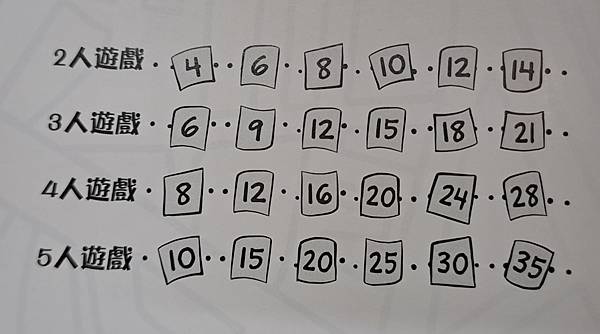 2人遊戲 4 6 8 10 12 14
3人遊戲 6 9 12 15 18 21
4人遊戲 8 12 16 20 24 28
5人遊戲 10 15 20 25 30 35